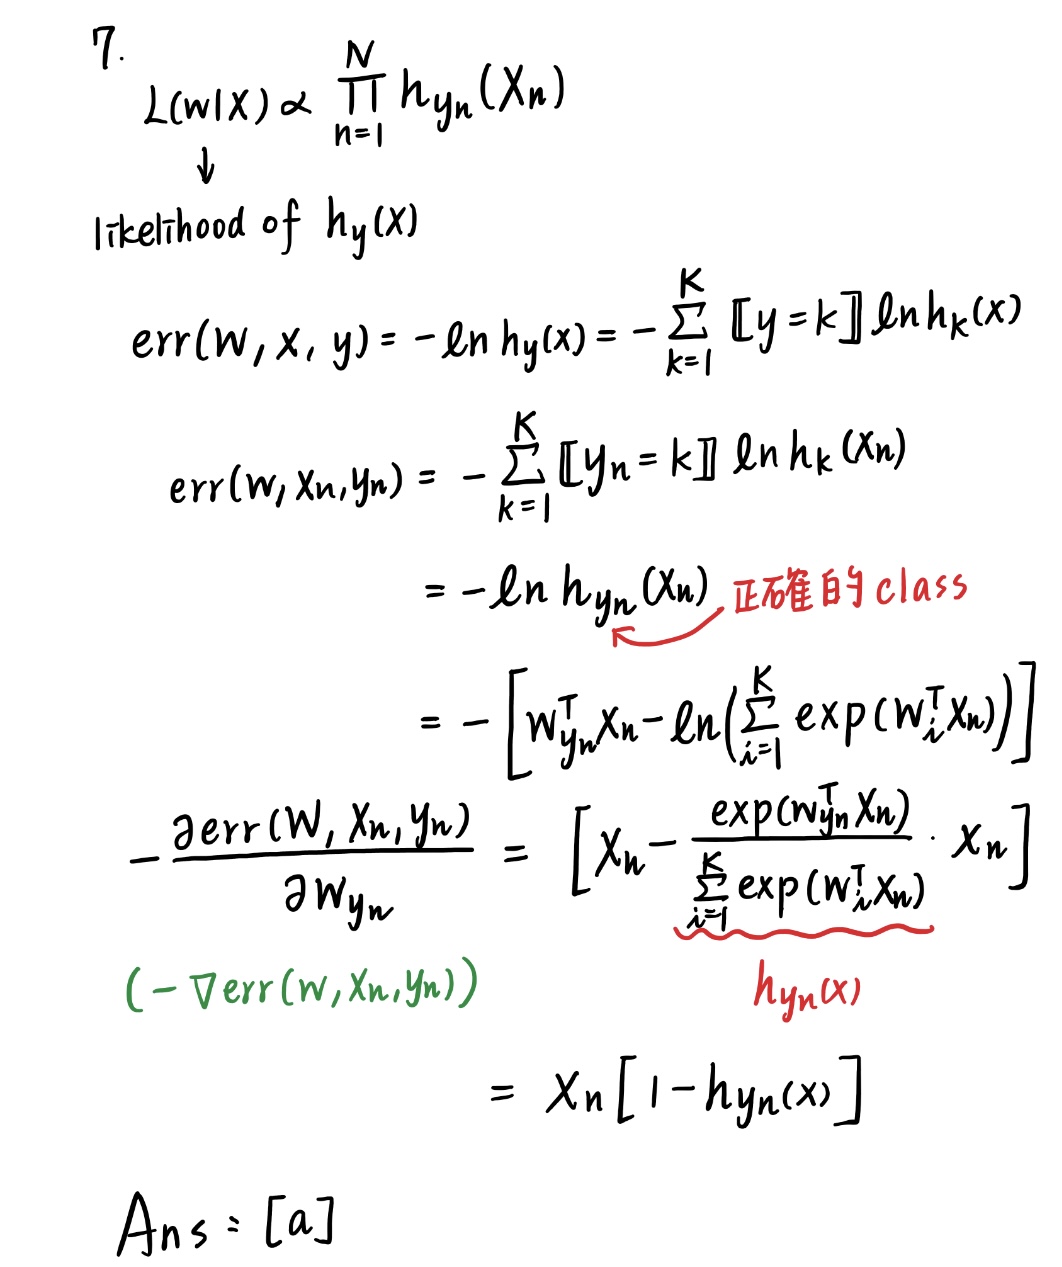 7.
L(w|X) ∝ ∏_{n=1}^{N} h_{y_n}(X_n)
↓
likelihood of h_y(X)
err(W, x, y) = -ln h_y(x) = -∑_{k=1}^{K} ⟦y = k⟧ ln h_k(x)
err(w, x_n, y_n) = -∑_{k=1}^{K} ⟦y_n = k⟧ ln h_k(x_n)
= -ln h_{y_n}(x_n) 正確的 class
= -[w_{y_n}^T x_n - ln(∑_{i=1}^{K} exp(w_i^T x_n))]
-∂err(W, x_n, y_n)/∂w_{y_n} = [x_n - exp(w_{y_n}^T x_n)/∑_{i=1}^{K} exp(w_i^T x_n) · x_n]
(-∇err(w, x_n, y_n)) h_{y_n}(x)
= x_n[1 - h_{y_n}(x)]
Ans = [a]